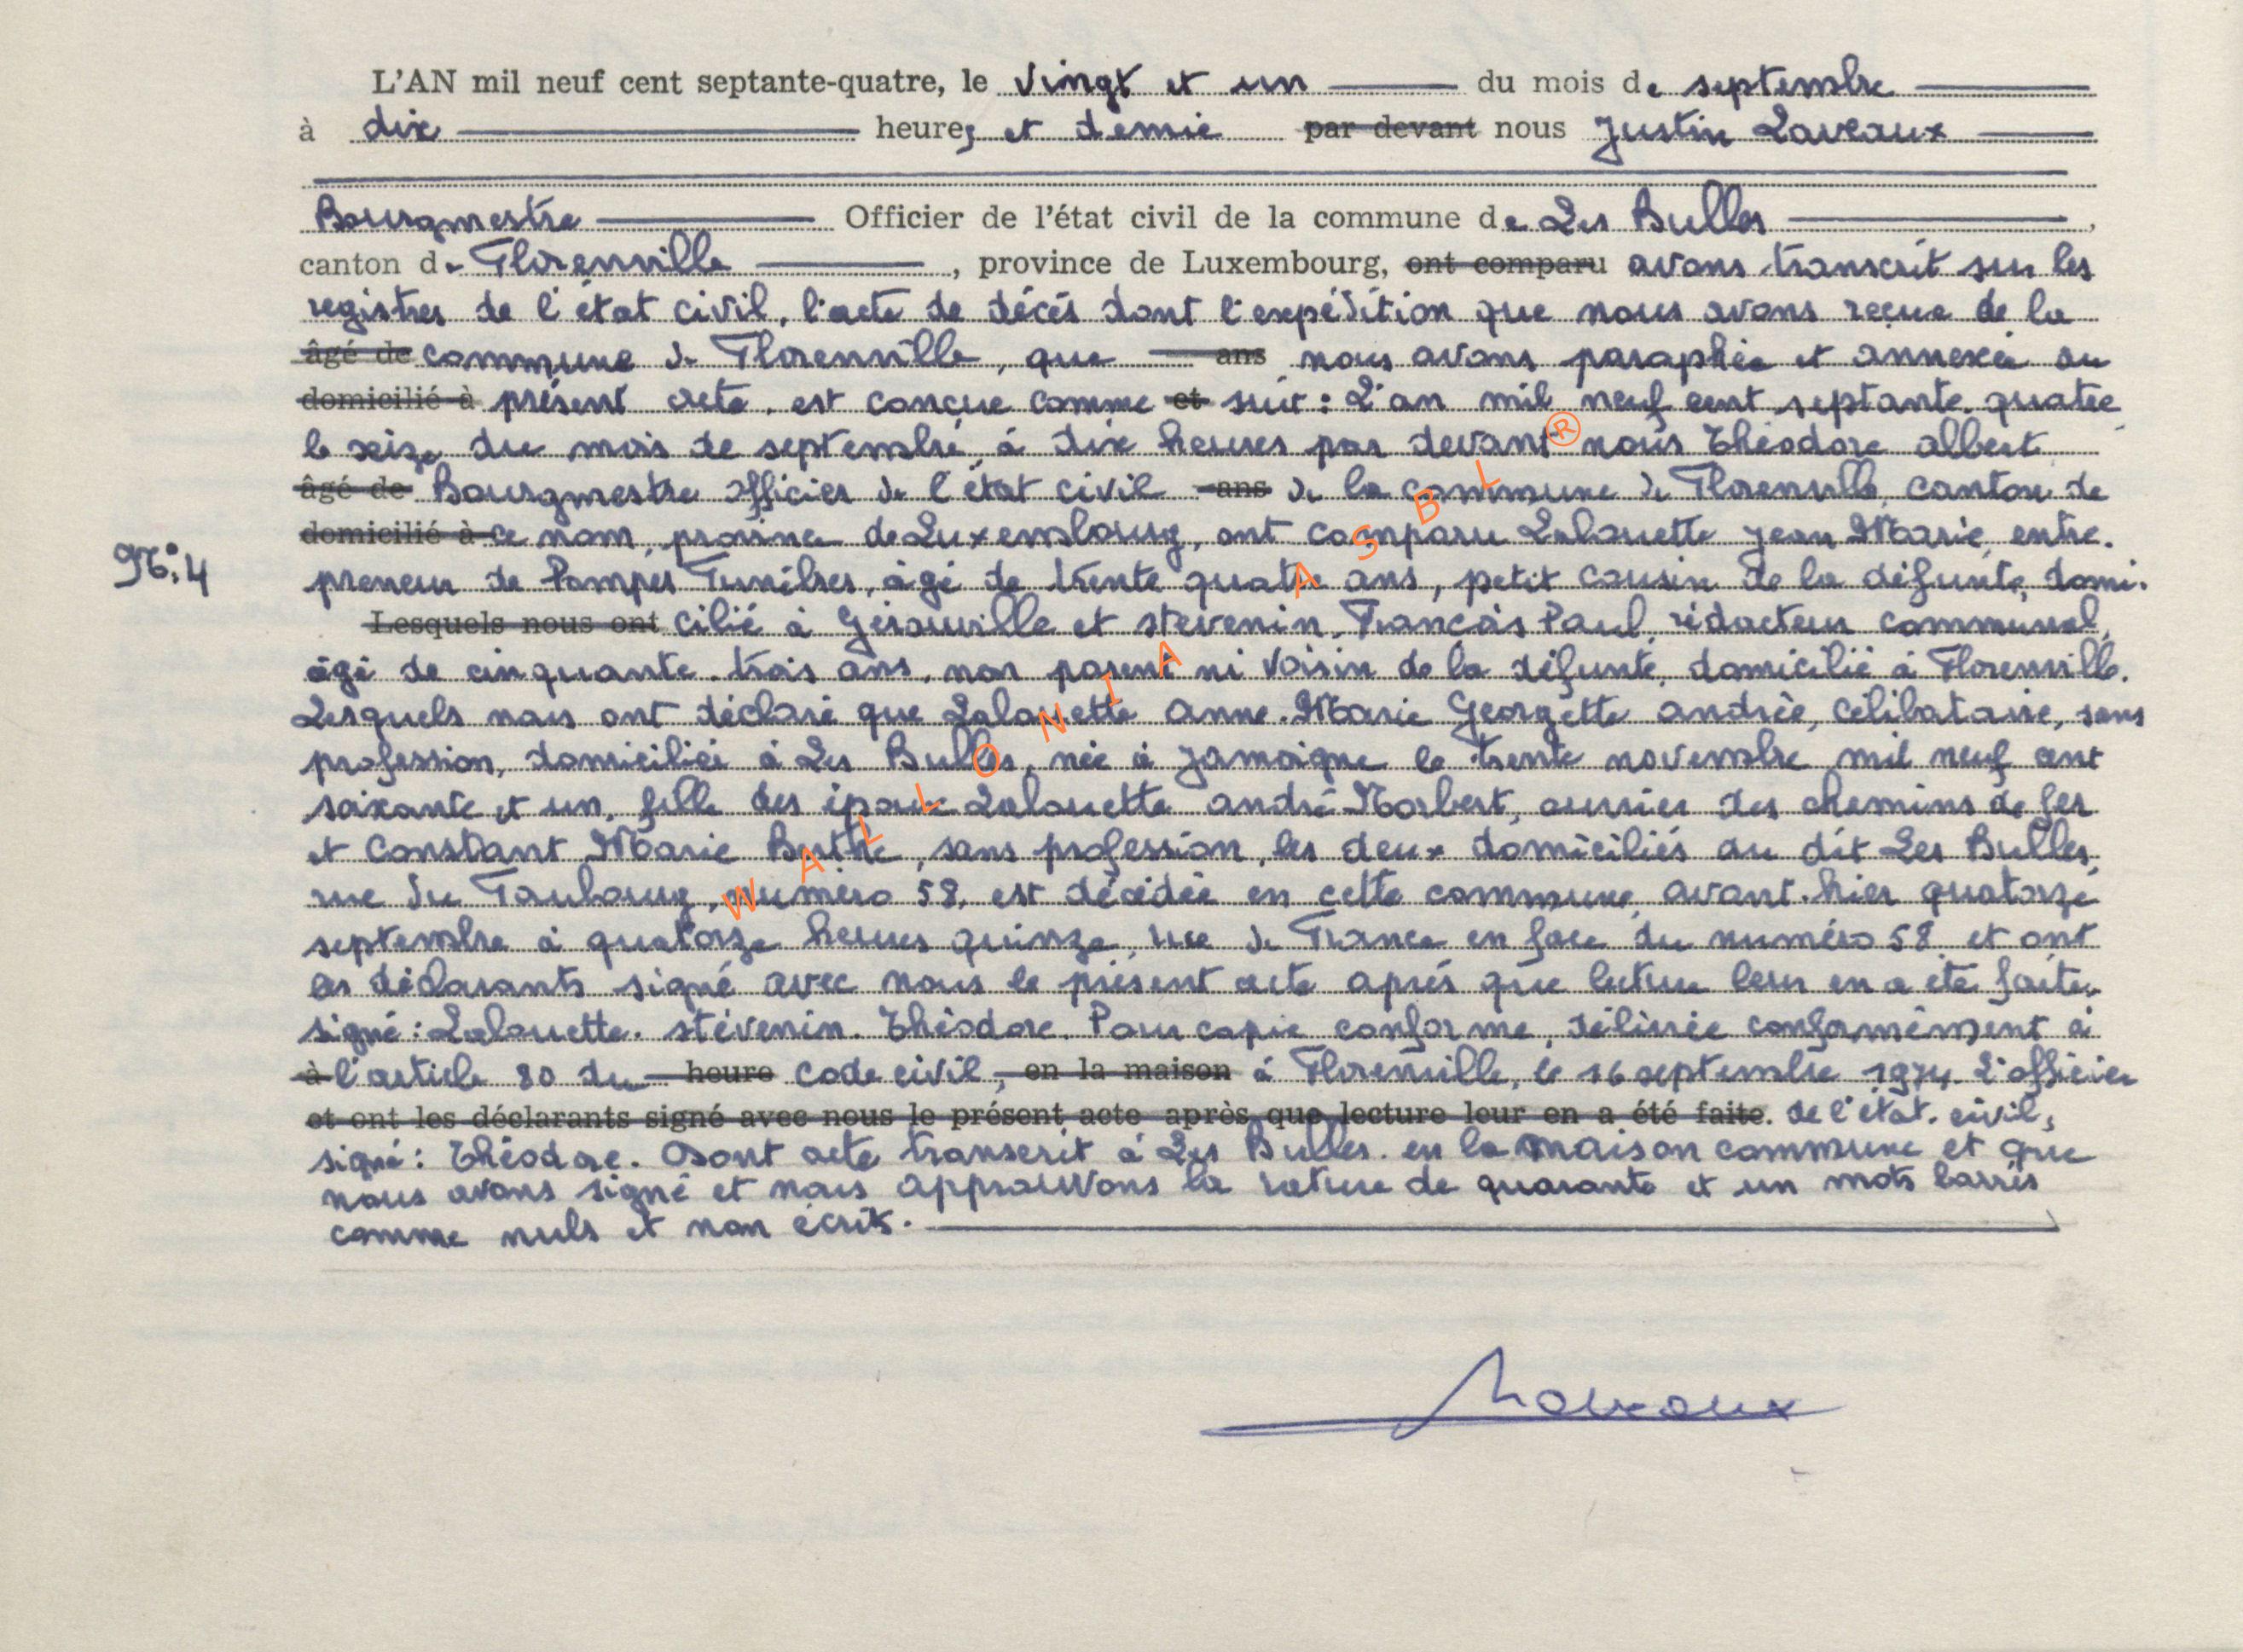 L'AN mil neuf cent septante-quatre, le vingt et un du mois de septembre
à dix heures et demie par devant nous Justin Laveaux
Bourgmestre Officier de l'état civil de la commune de Les Bulles,
canton de Florenville, province de Luxembourg, ont comparu avons transcrit sur les
registres de l'état civil, l'acte de décés dont l'expédition que nous avons reçue de la
âgé de commune de Florenville, que ans nous avons paraphée et annexée au
domicilié à présent acte, est concue comme et suit : L'an mil neuf cent septante-quatre
le seize du mois de septembre, à dix heures par devant nous Théodore albert
âgé de Bourgmestre officier de l'état civil ans de la commune de Florenville, canton de
domicilié à ce nom, province de Luxembourg, ont comparu Lalouette Jean Marie, entre-
N°: 4
preneur de Pompes Funèbres, âgé de trente quatre ans, petit cousin de la défunte, domi-
Lesquels nous ont cilié à Gérouville et stevenin, François Paul, rédacteur communal,
âgé de cinquante-trois ans, non parent ni voisin de la défunte, domicilié à Florenville.
Lesquels nous ont déclaré que Lalouette Anne-Marie Georgette andrée, célibataire, sans
profession, domiciliée à Les Bulles, née à Jamoigne le trente novembre mil neuf cent
soixante et un, fille des époux Lalouette andré Norbert, ouvrier des chemins de fer
et Constant Marie Berthe, sans profession, les deux domiciliés au dit Les Bulles,
rue du Faubourg, numéro 58, est décédée en cette commune, avant-hier quatorze
septembre à quatorze heures quinze, rue de France en face du numéro 58 et ont
les déclarants signé avec nous le présent acte aprés que lecture leur en a été faite,
signé : Lalouette. stévenin. Théodore. Pour copie conforme, délivrée conformément à
à l'article 80 du heure code civil, en la maison à Florenville, le 16 septembre 1974. L'officier
et ont les déclarants signé avec nous le présent acte après que lecture leur en a été faite. de l'état civil,
signé : Théodore. Dont acte transcrit à Les Bulles en la maison commune et que
nous avons signé et nous approuvons la rature de quarante et un mots barrés
comme nuls et non écrits.
Laveaux
WALLONIA ASBL ®